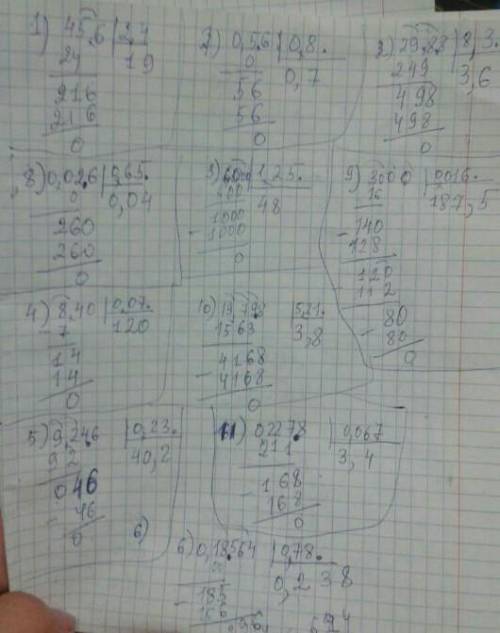 1) 45,6 | 2,4
24 | 19
216
216
0
2) 0,5,6 | 0,8.
0 | 0,7
56
56
0
3) 29,8,8 | 8,3.
249 | 3,6
498
498
0
8) 0,02,6 | 0,65.
0 | 0,04
260
260
0
6000 | 1,25.
48
1000
1000
0
9) 3000 | 0,016.
16 | 187,5
140
128
120
112
80
80
0
4) 8,40 | 0,07.
7 | 120
14
14
0
10) 19,798 | 5,21.
1563 | 3,8
4168
4168
0
5) 9,24,6 | 0,23.
92 | 40,2
046
46
0
11) 0,2278 | 0,067
3,4
268
268
0
6)
6) 0,18,564 | 0,78.
0,238
185
156